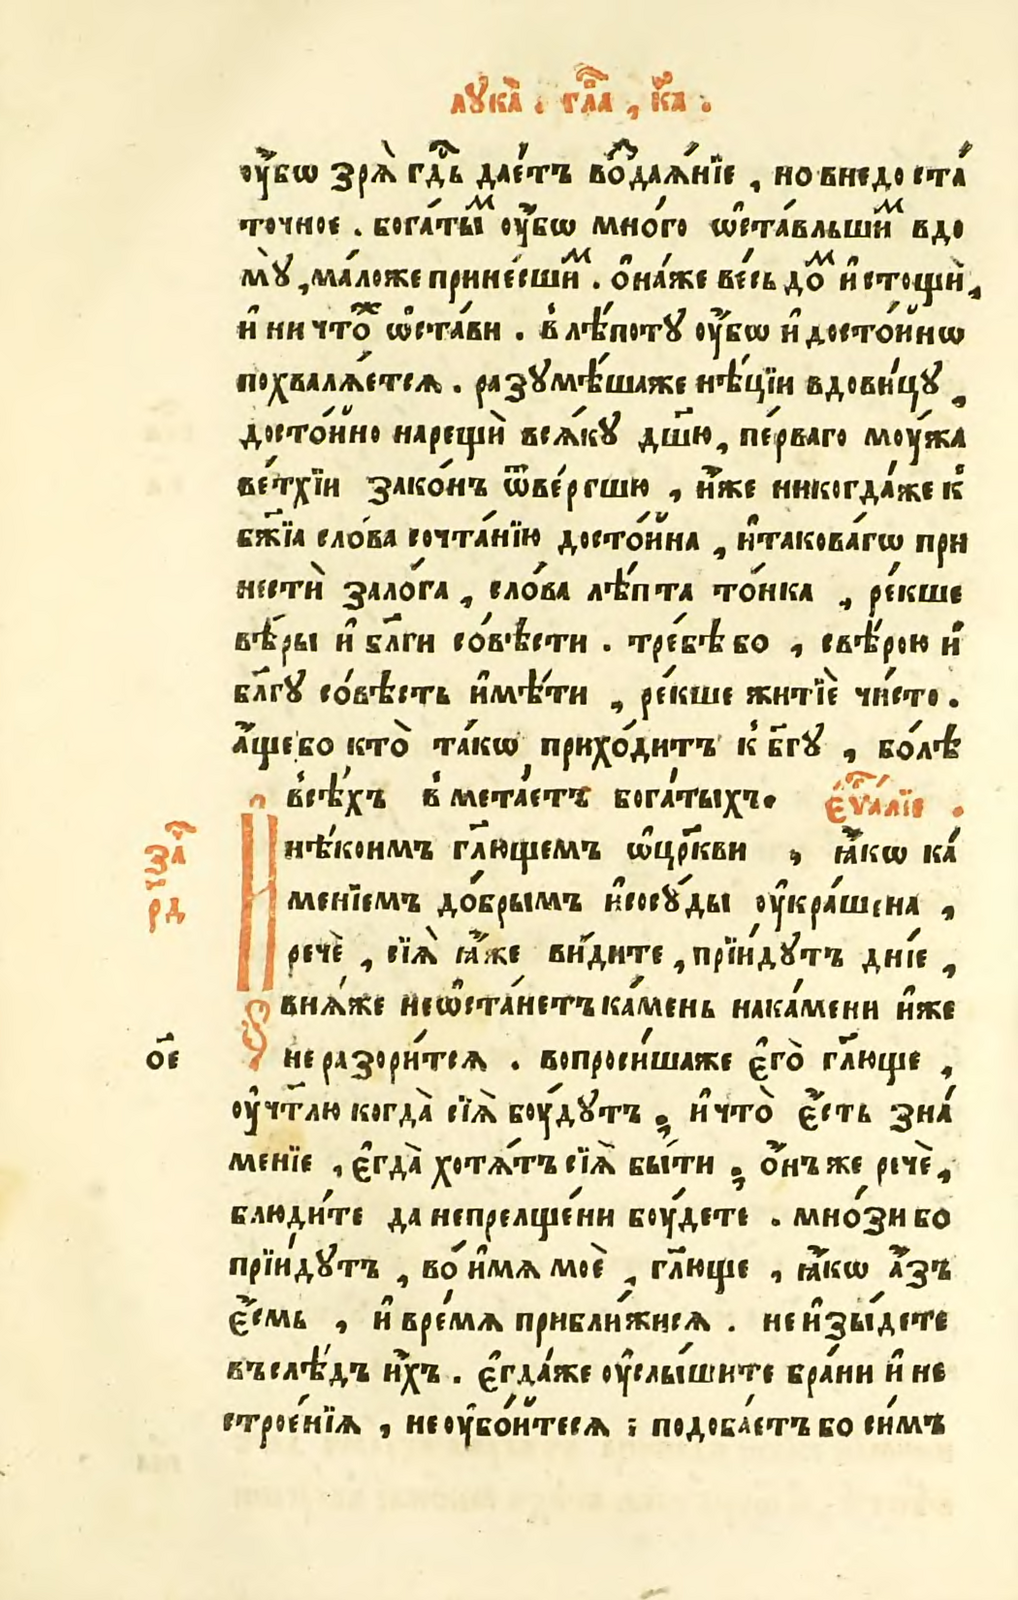 лꙋка̀ . гл҃а , к҃а .
оу҆́бѡ зрѧ̀ гдⷭ҇ь дае́тъ воз̾даѧ́нїе , но внедоста́
точное . бога́тыⷨ оу҆́бѡ мно́го ѡ҆ста́вльшиⷨ вдо
мꙋ̀ , ма́ложе прине́сшиⷨ . ѻ҆на́же ве́сь до́ⷨ и҆стощѝ ,
и҆ ничто́ⷤ ѡ҆ста́ви . в̾ лѣ́потꙋ оу҆́бѡ и҆ досто́йнѡ
похвалѧ́етсѧ . разꙋмѣ́шаже нѣ́цїи вдови́цꙋ ,
досто́йно нарещѝ всѧ́кꙋ дш҃ю , пе́рваго моу́жа
ве́тхїи зако́нъ ѿве́ргшю , и҆́же никогда́же к̾
бж҃їа сло́ва сочта́нїю досто́йна , и҆таково́гѡ при
нестѝ зало́га , сло́ва лѣ́пта то́нка , ре́кше
вѣ́ры и҆ бл҃ги со́вѣсти . тре́бѣ бо , свѣ́рою и҆
бл҃гꙋ со́вѣсть и҆мѣ́ти , ре́кше житїѐ чи́сто .
а҆́ще бо кто̀ та́кѡ приходи́тъ к̾ бг҃ꙋ , бо́лѣ
в̾сѣ́хъ в̾мета́етъ бога́тыхъ . є҆ѵⷢ҇алїе .
за҃ⷱ
Нѣ́коимъ гл҃ющемъ ѡ҆цр҃кви , ꙗ҆́кѡ ка́
р҃д
менїемъ до́брымъ и҆сосꙋ́ды оу҆кра́шена ,
речѐ , сїѧ̀ ꙗ҆́же ви́дите , прїи́дꙋтъ дні́е ,
внѧ́же неѡ҆ста́нетъ ка́мень нака́мени и҆́же
ѻ҃е
не разори́тсѧ . вопроси́шаже є҆го̀ гл҃юще ,
оу҆чт҃лю когда̀ сїѧ̀ боу́дꙋтъ ; и҆ что̀ є҆́сть зна́
менїе , є҆гда̀ хотѧ́тъ сїѧ̀ бы́ти ; ѻ҆́нъ же речѐ ,
блюди́те да непрелще́ни боу́дете . мно́зи бо
прїи́дꙋтъ , во́ и҆мѧ моѐ , гл҃юще , ꙗ҆́кѡ а҆́зъ
є҆́смь , и҆ вре́мѧ прибли́жисѧ . не и҆зы́дете
въслѣ́дъ и҆́хъ . є҆гда́же оу҆слы́шите бра́ни и҆ не
строе́нїѧ , не оу҆бо́йтесѧ ; подоба́етъ бо си́мъ